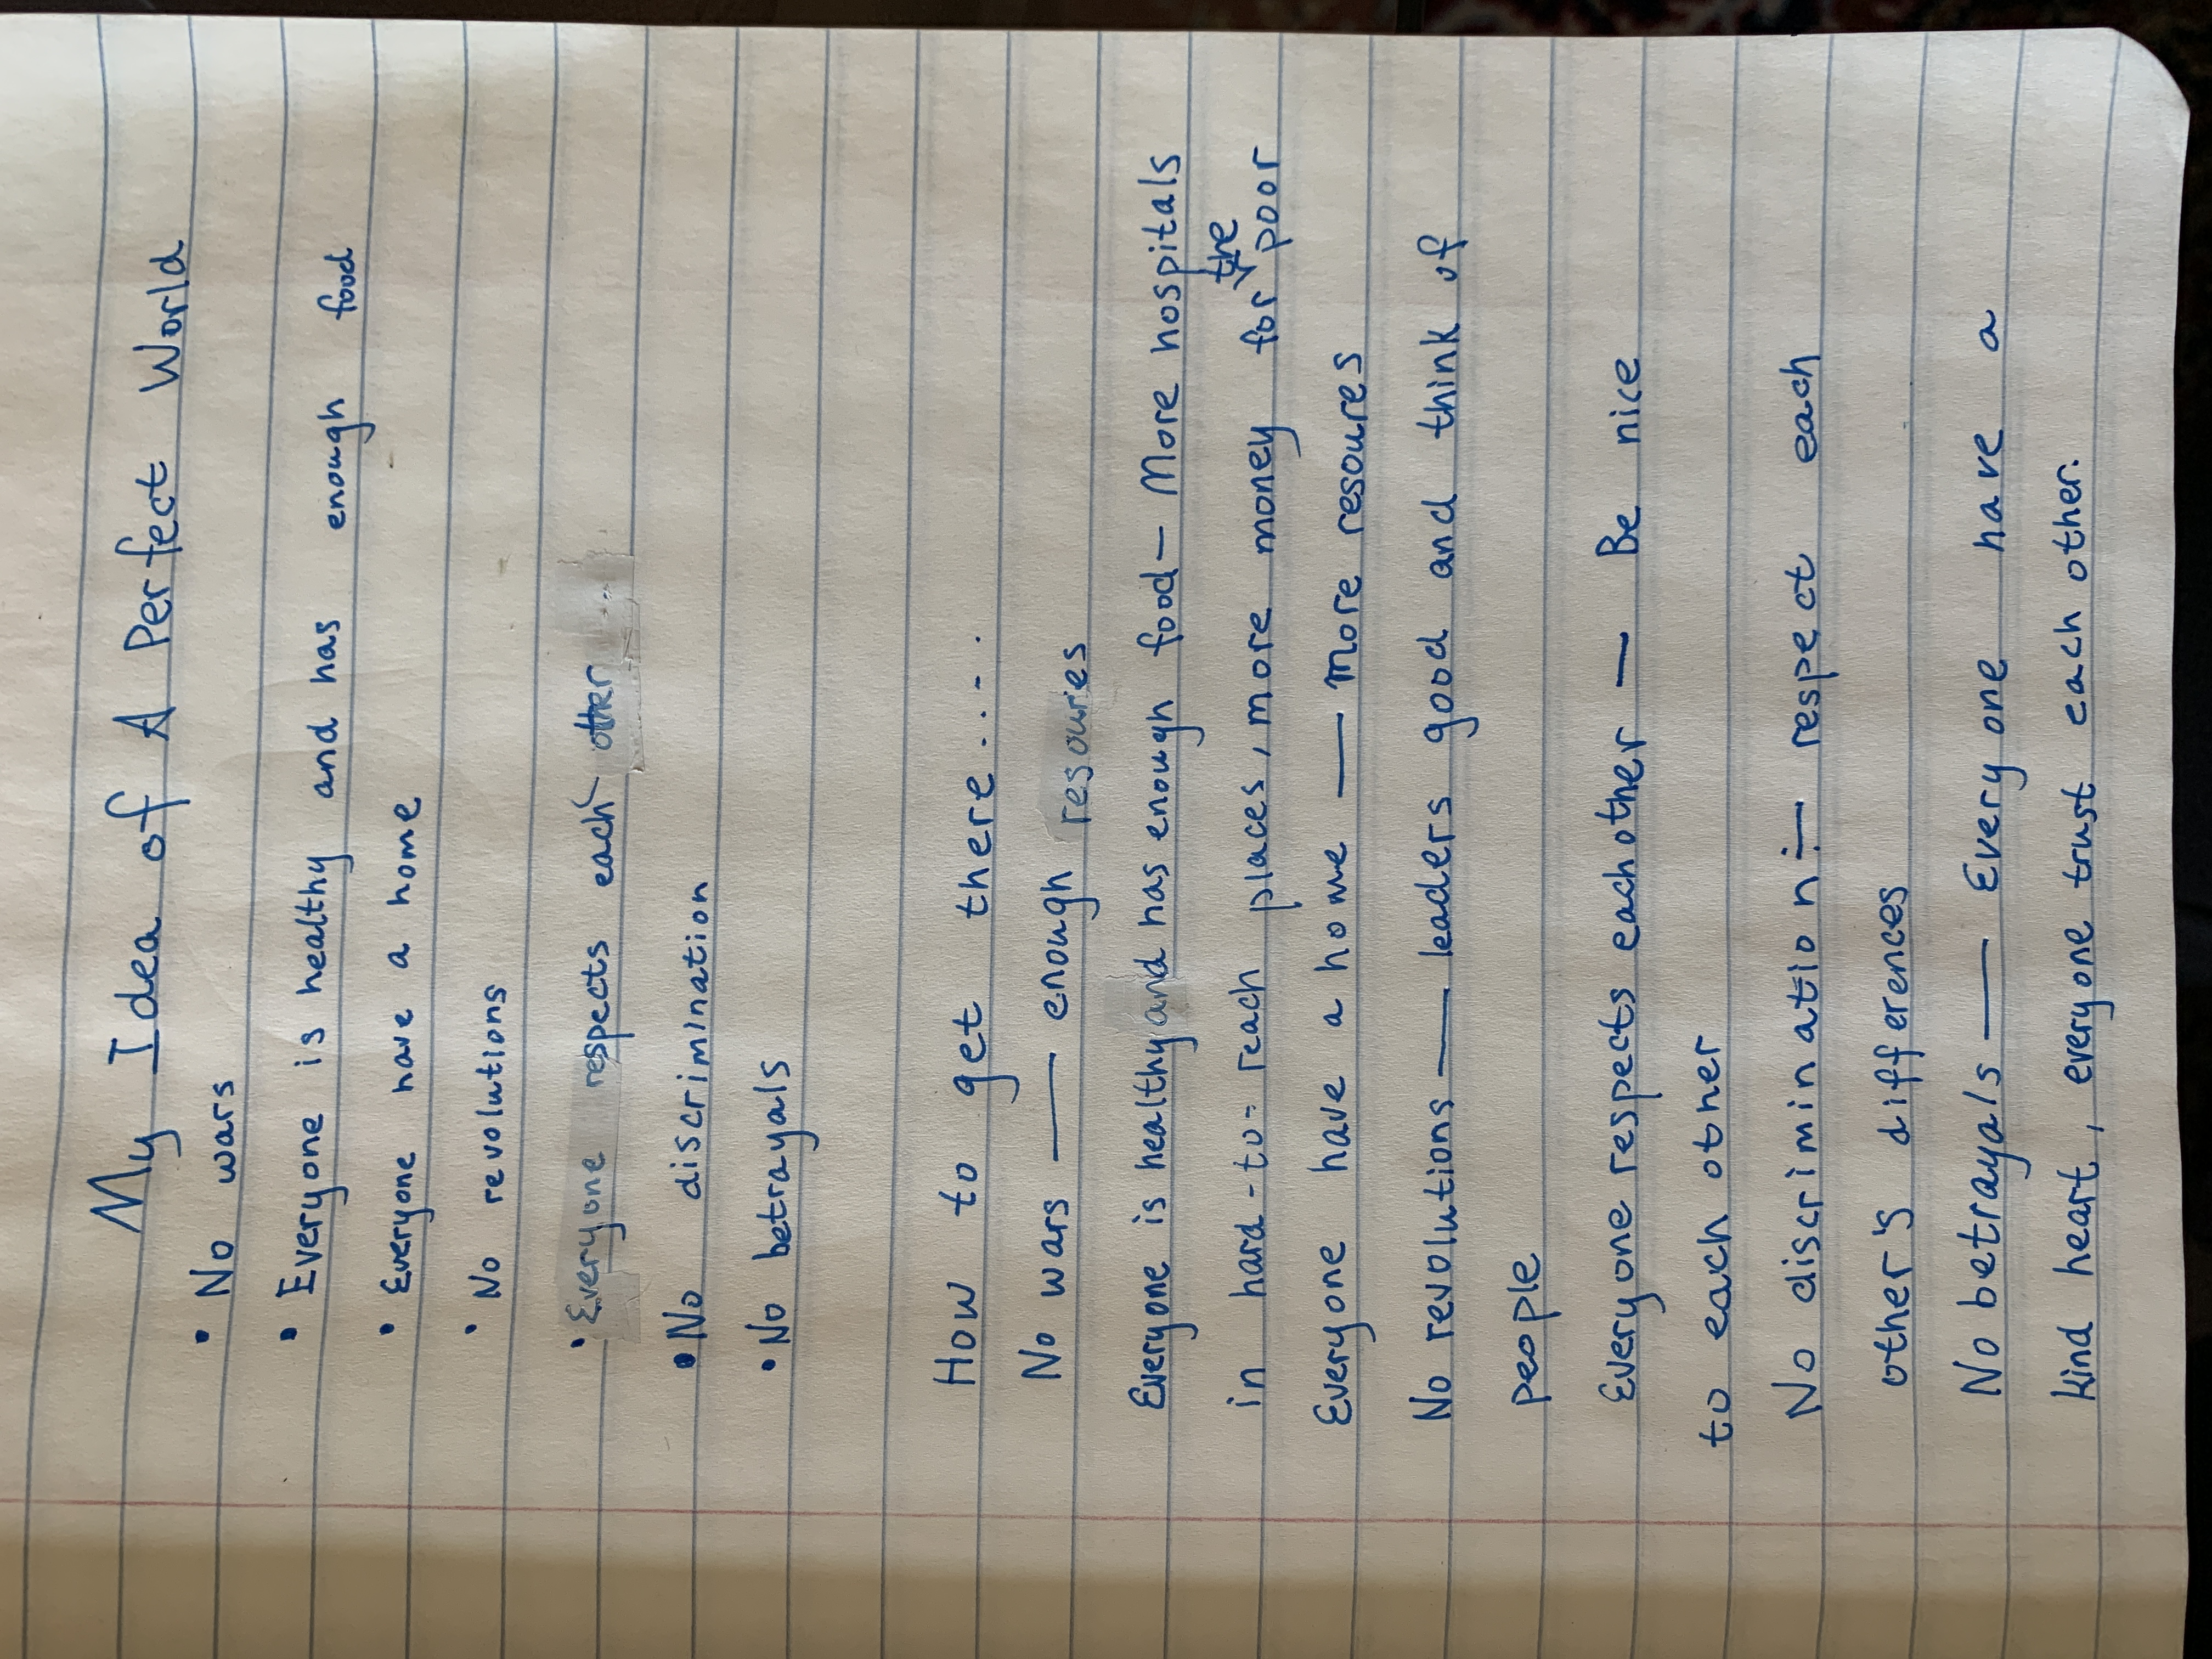 My Idea of A Perfect World
• No wars
• Everyone is healthy and has enough food
• Everyone have a home
• No revolutions
• Everyone respects each other
• No discrimination
• No betrayals
How to get there.....
No wars — enough resources
Everyone is healthy and has enough food — More hospitals
in hard-to-reach places, more money for the poor
Everyone have a home — more resoures
No revolutions — leaders good and think of
people
Everyone respects eachother — Be nice
to each other
No discrimination — respect each
other's differences
No betrayals — Everyone have a
kind heart, everyone trust each other.